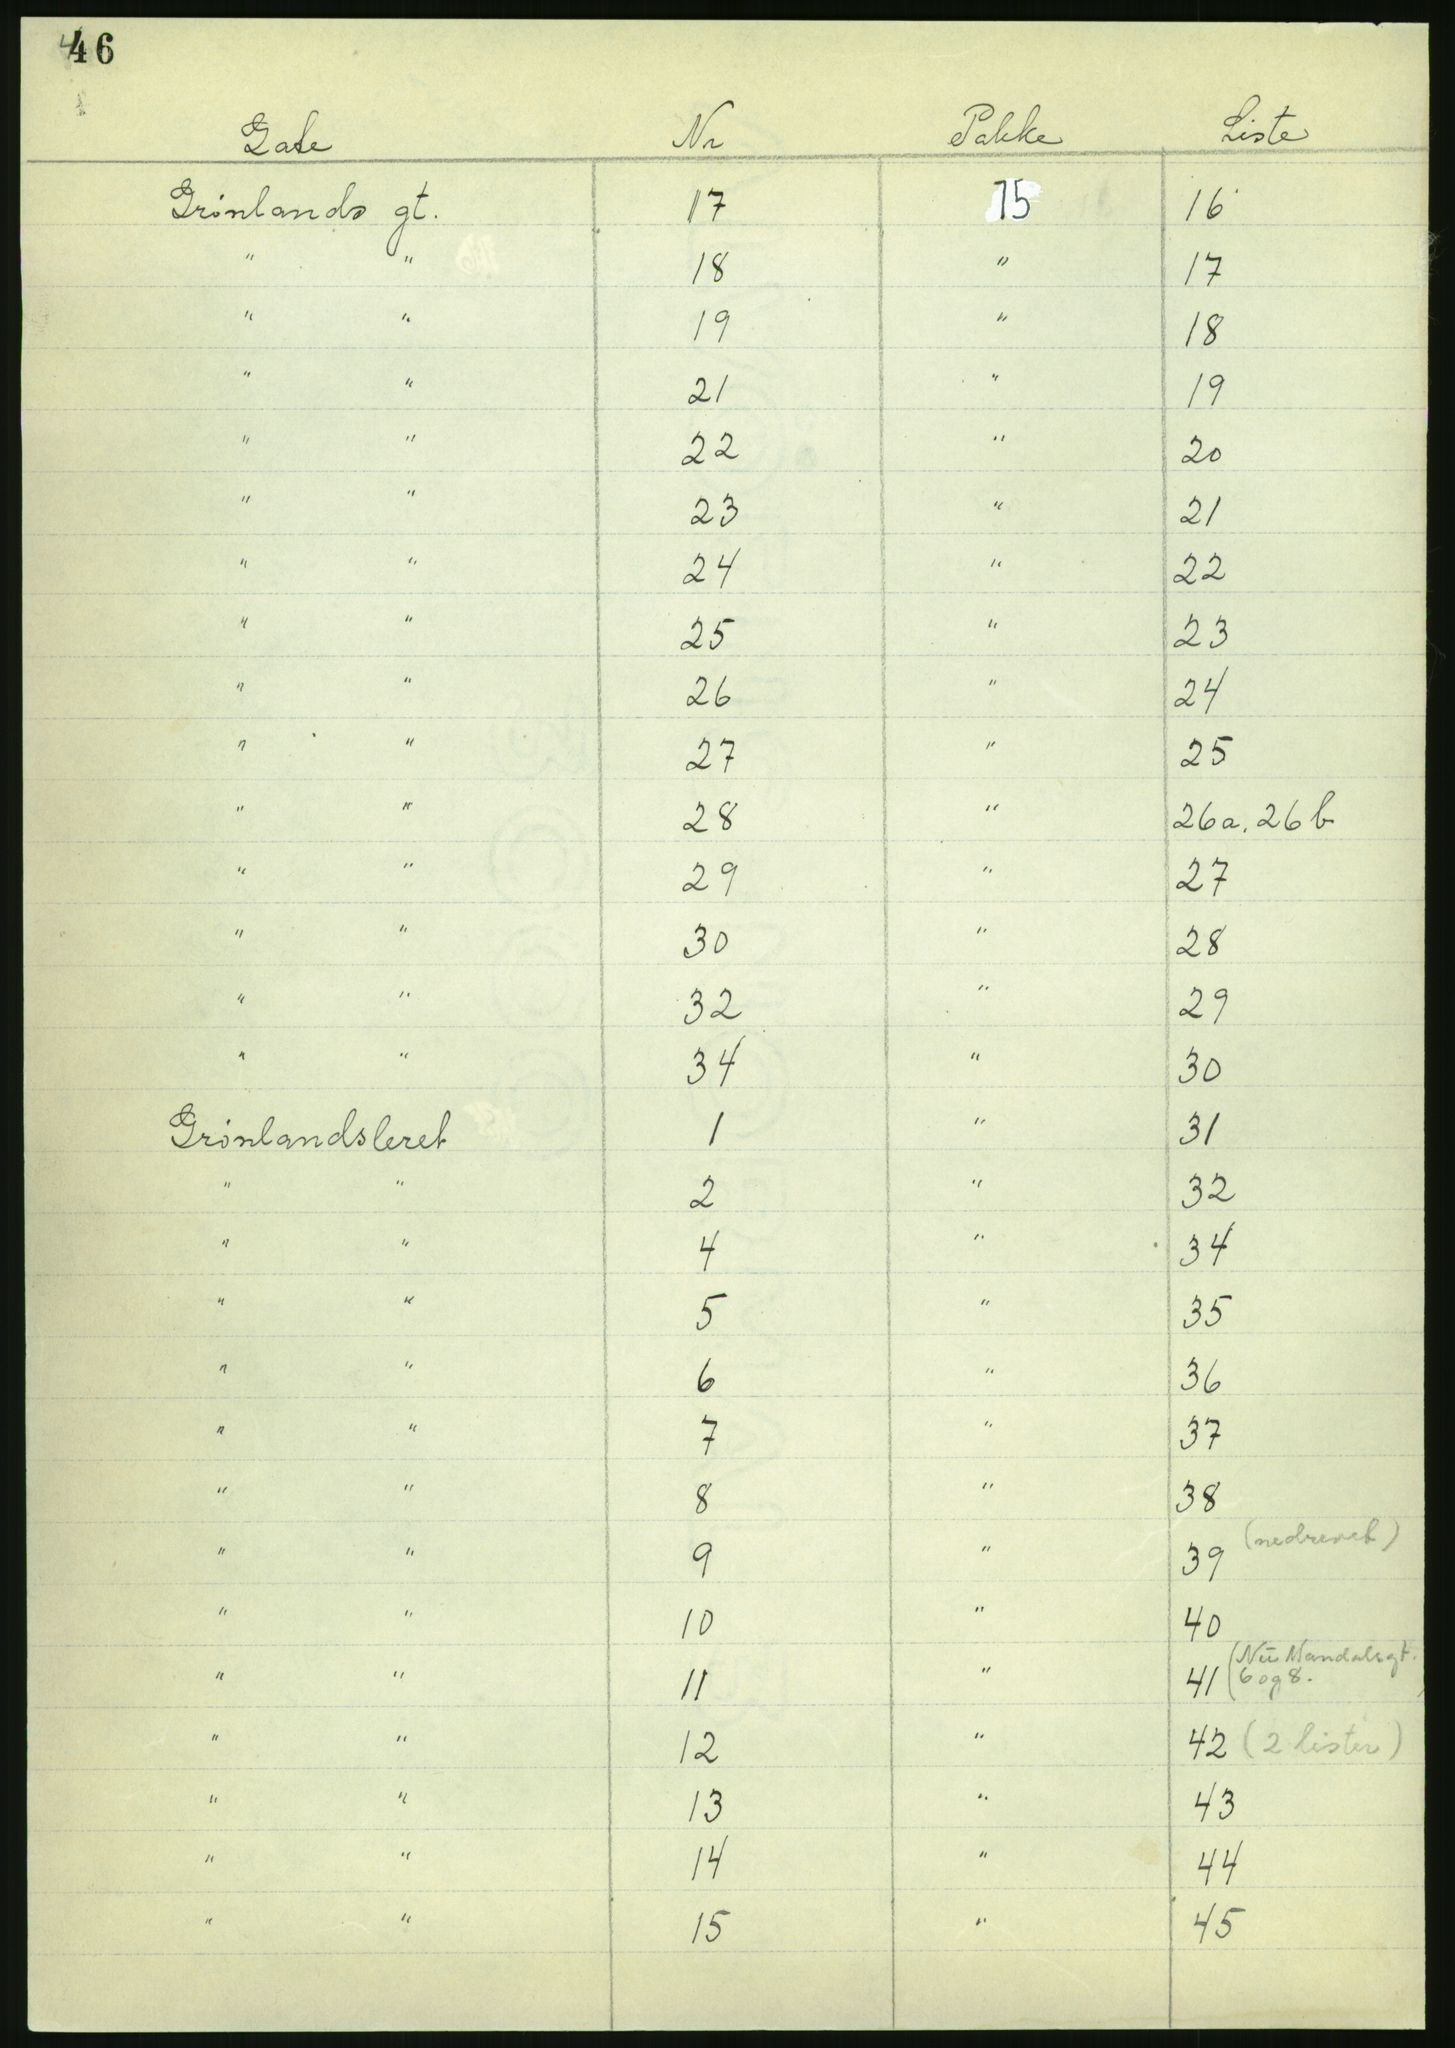 46
Gate Nr Pakke Liste
Grönlands gt. 17 15 16
" " 18 " 17
" " 19 " 18
" " 21 " 19
" " 22 " 20
" " 23 " 21
" " 24 " 22
" " 25 " 23
" " 26 " 24
" " 27 " 25
" " 28 " 26a. 26b
" " 29 " 27
" " 30 " 28
" " 32 " 29
" " 34 " 30
Grönlandsleret 1 " 31
" " 2 " 32
" " 4 " 34
" " 5 " 35
" " 6 " 36
" " 7 " 37
" " 8 " 38
" " 9 " 39 (nedrevet)
" " 10 " 40
" " 11 " 41 (Nu Mandalsgt. 6 og 8.)
" " 12 " 42 (2 lister)
" " 13 " 43
" " 14 " 44
" " 15 " 45